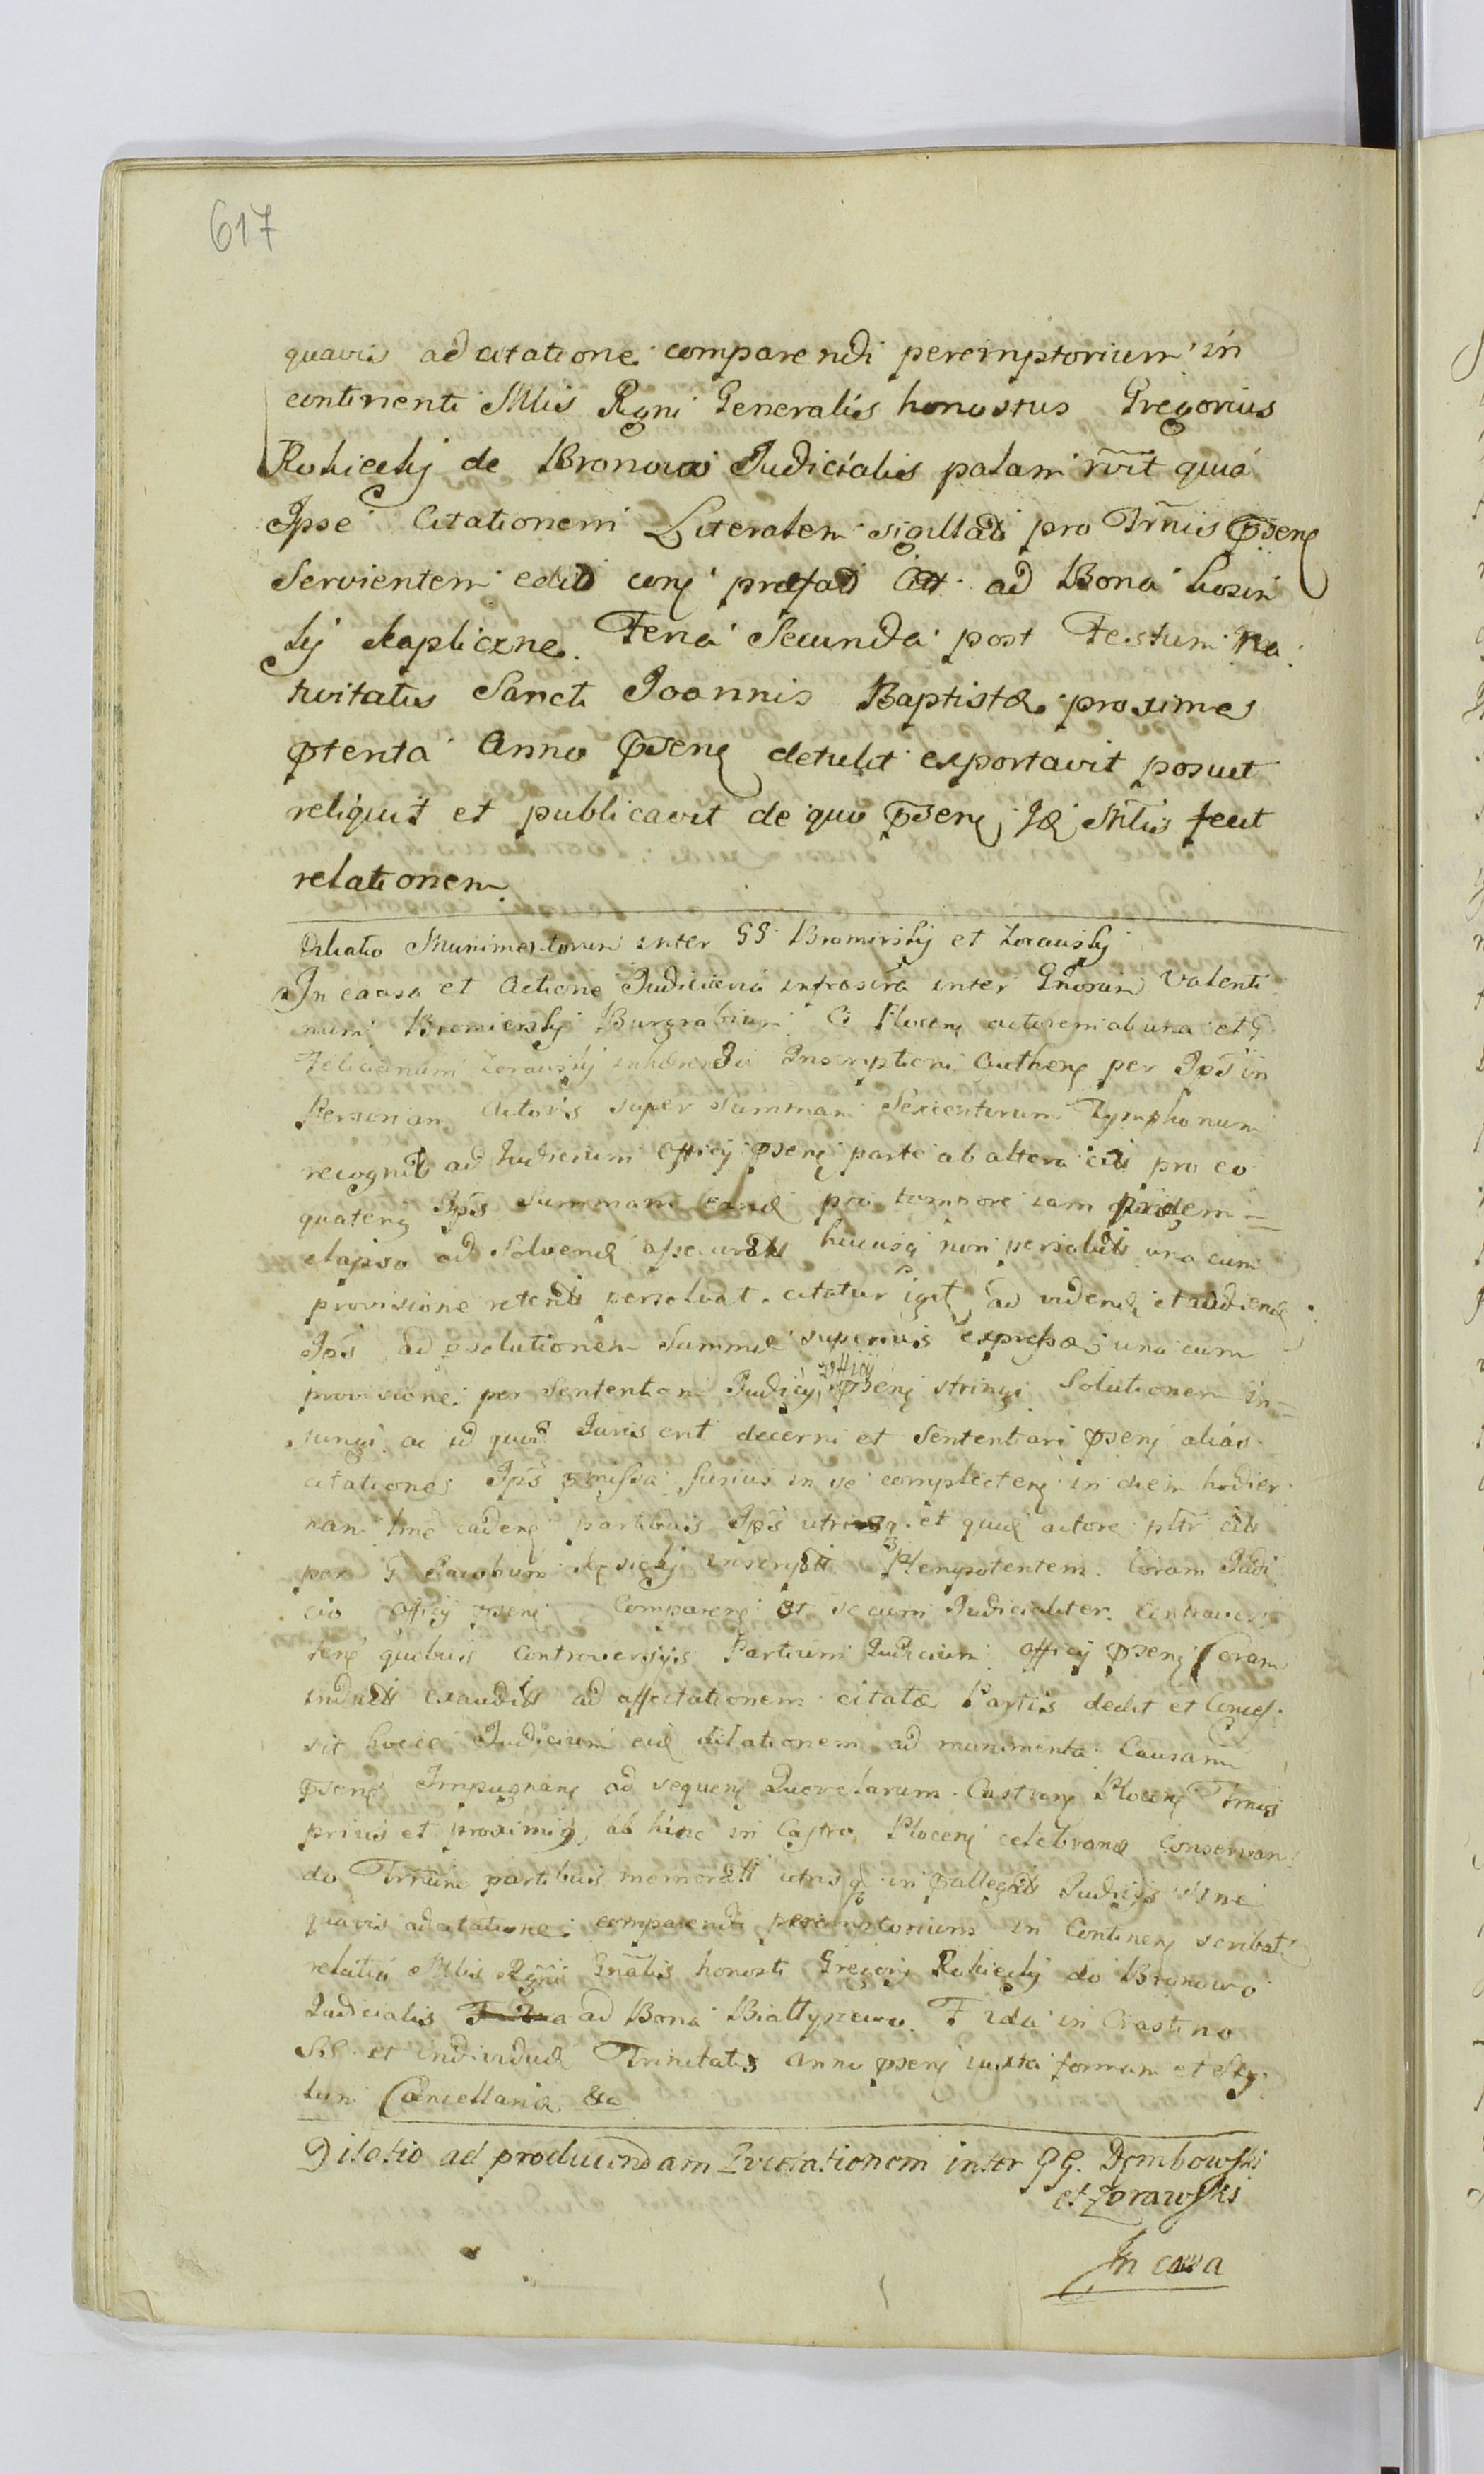 617
quavis adcitatione comparendi peremptorium in
continenti Mlis Rgni Generalis honestus Gregorius
Rokicckij de Bronowo Judicialis palam rvit quia
Ipse Citationem Literalem sigillad pro Trnis pseng
Servientem edid prefad Citt ad Bona Cosin
kij Kapliczne Feria Secunda post Festum Na
tivitatis Sancti Joannis Baptistæ proxime
ptenta Anno pseng detulit exportavit posuit
reliquit et publicavit de quo pseng Mlis fecit
relationem
Dilatio Munimentorum inter GG Bromirskij et Zorawskij
In causa et Actione Judiciaria infrascra inter Gnosum Valenti
num Bromierskij Burgrabium C Ploceng actorem ab una et G
Felicianum Zorawskij inhærendo Inscriptioni Autheng per Ips in
Personam Actoris super summam Sexcentorum Tymphonum
recognit ad Judicium Officij pseng parte ab altera citt pro eo
quateng Ips Summam eand pro termino iam pridem
elapso ad Solvend assecuratt hucusq non persolutt una cum
provisione retentt persolvat. citatur igit ad vidend et audiend
Ips ad psolutionem Summæ superius expressæ una cum
provisione per Sententiam Judicij Officij pseng stringi Solutionem in
iungi ac id quod Juris erit decerni et Sententiari pseng alias
citationes Ips pmissa fusius in se complecteng in diem hodier
nam tme cadeng partibus Ips utrisq et quid actore pltr citt
per G Jacobum inscriptt Plenipotentem Coram Judi
cio Officij pseng Compareng et secum Judicialiter Controver
teng quibus Controversijs Partium Judicium Officij pseng Coram
inductt exauditt ad affectationem citatæ Partis dedit et Conces
sit hocce Judicium eid dilationem ad munimenta Causam
pseng Impugnang ad sequeng Querelarum Castreng Ploceng Trnos
prius et proximios ab hinc in Castro Ploceng celebrand Conservan
do Trnum partibus memoratt utrisq in pallegatt Judicijs sine
quavis adcitatione comparendi peremptorium in Contineng scribat
relatio Mlis Rgni Gnalis honesti Gregorij Rokicckij de Bronowo
Judicialis ad Bona Biallyszewo F 2da in Crastino
SS et individuæ Trinitatis Anni pseng iuxta formam et Sty
lum Cancellariæ &a
Dilatio ad producendam Evictationem inter GG. Dembowski
et Zorawski
In causa